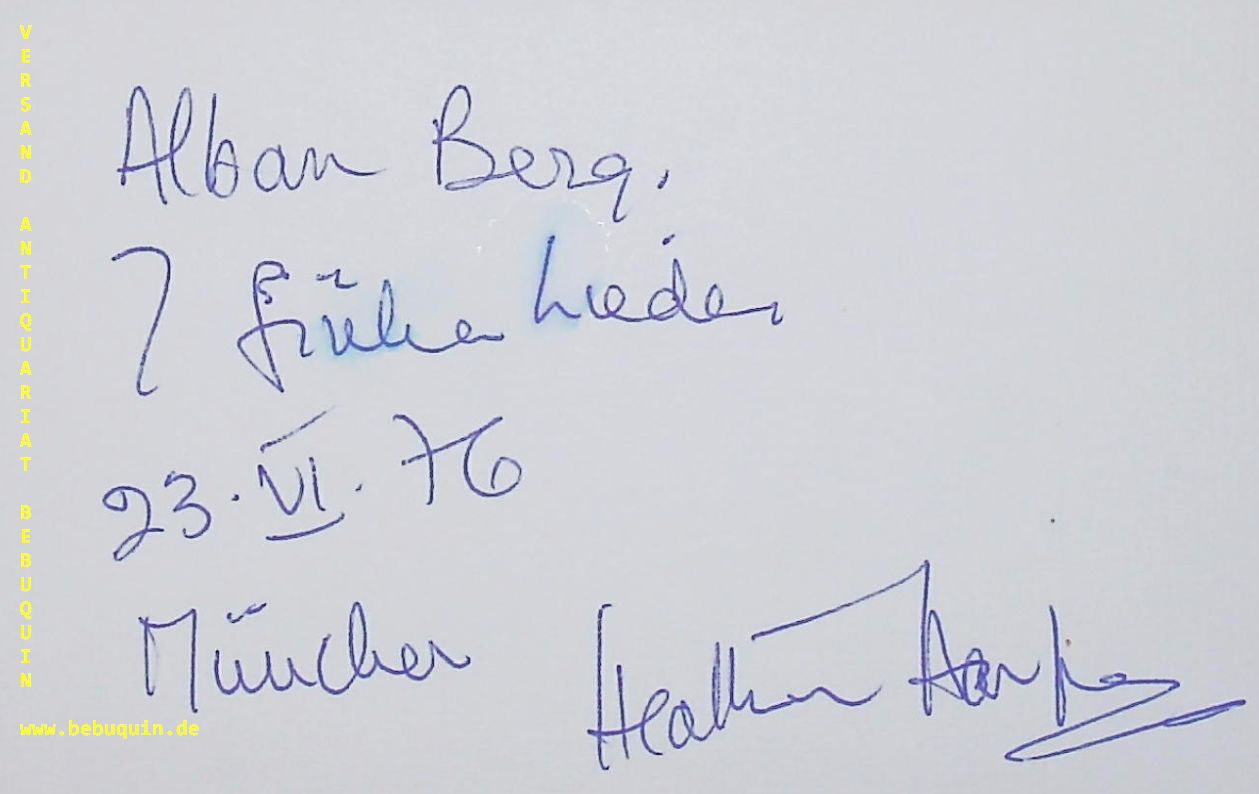 VERSAND ANTIQUARIAT BEBUQUIN
Alban Berg.
7 frühe Lieder
23. VI. 76
München
Heather Harper
www.bebuquin.de